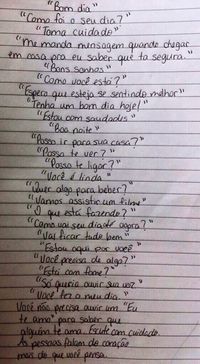 "Bom dia"
"Como foi o seu dia?"
"Toma cuidado"
"Me manda mensagem quando chegar
em casa pra eu saber que ta segura."
"Bons sonhos"
"Como você está?"
"Espero que esteja se sentindo melhor"
"Tenha um bom dia hoje!"
"Estou com saudades"
"Boa noite"
"Posso ir para sua casa?"
"Posso te ver?"
"Posso te ligar?"
"Você é linda"
"Quer algo para beber?"
"Vamos assistir um filme"
"O que está fazendo?"
"Como vai seu dia até agora?"
"Vai ficar tudo bem"
"Estou aqui por você"
"Você precisa de algo?"
"Está com fome?"
"Só queria ouvir sua voz"
"Você fez o meu dia"
Você não precisa ouvir um "Eu
te amo" para saber que
alguém te ama. Escute com cuidado.
As pessoas falam do coração
mais do que você pensa.